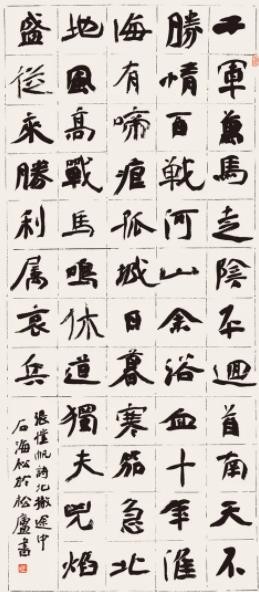 千軍萬馬走陰平迴首南天不
勝情百战河山余浴血十年淮
海有啼痕孤城日暮寒笳急北
地風高戰馬鳴休道獨夫兇焰
盛從來勝利属哀兵
張愷帆詩北撤途中
石海松於松廬書